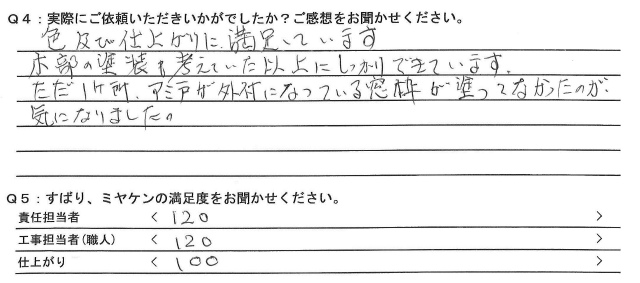 Q4：実際にご依頼いただきいかがでしたか？ご感想をお聞かせください。
色及び仕上がりに満足しています
木部の塗装も考えていた以上にしっかりできています。
ただ1ケ所、アミ戸が外付になっている窓枠が塗ってなかったのが、
気になりました。
Q5：ずばり、ミヤケンの満足度をお聞かせください。
責任担当者 〈 120 〉
工事担当者(職人) 〈 120 〉
仕上がり 〈 100 〉